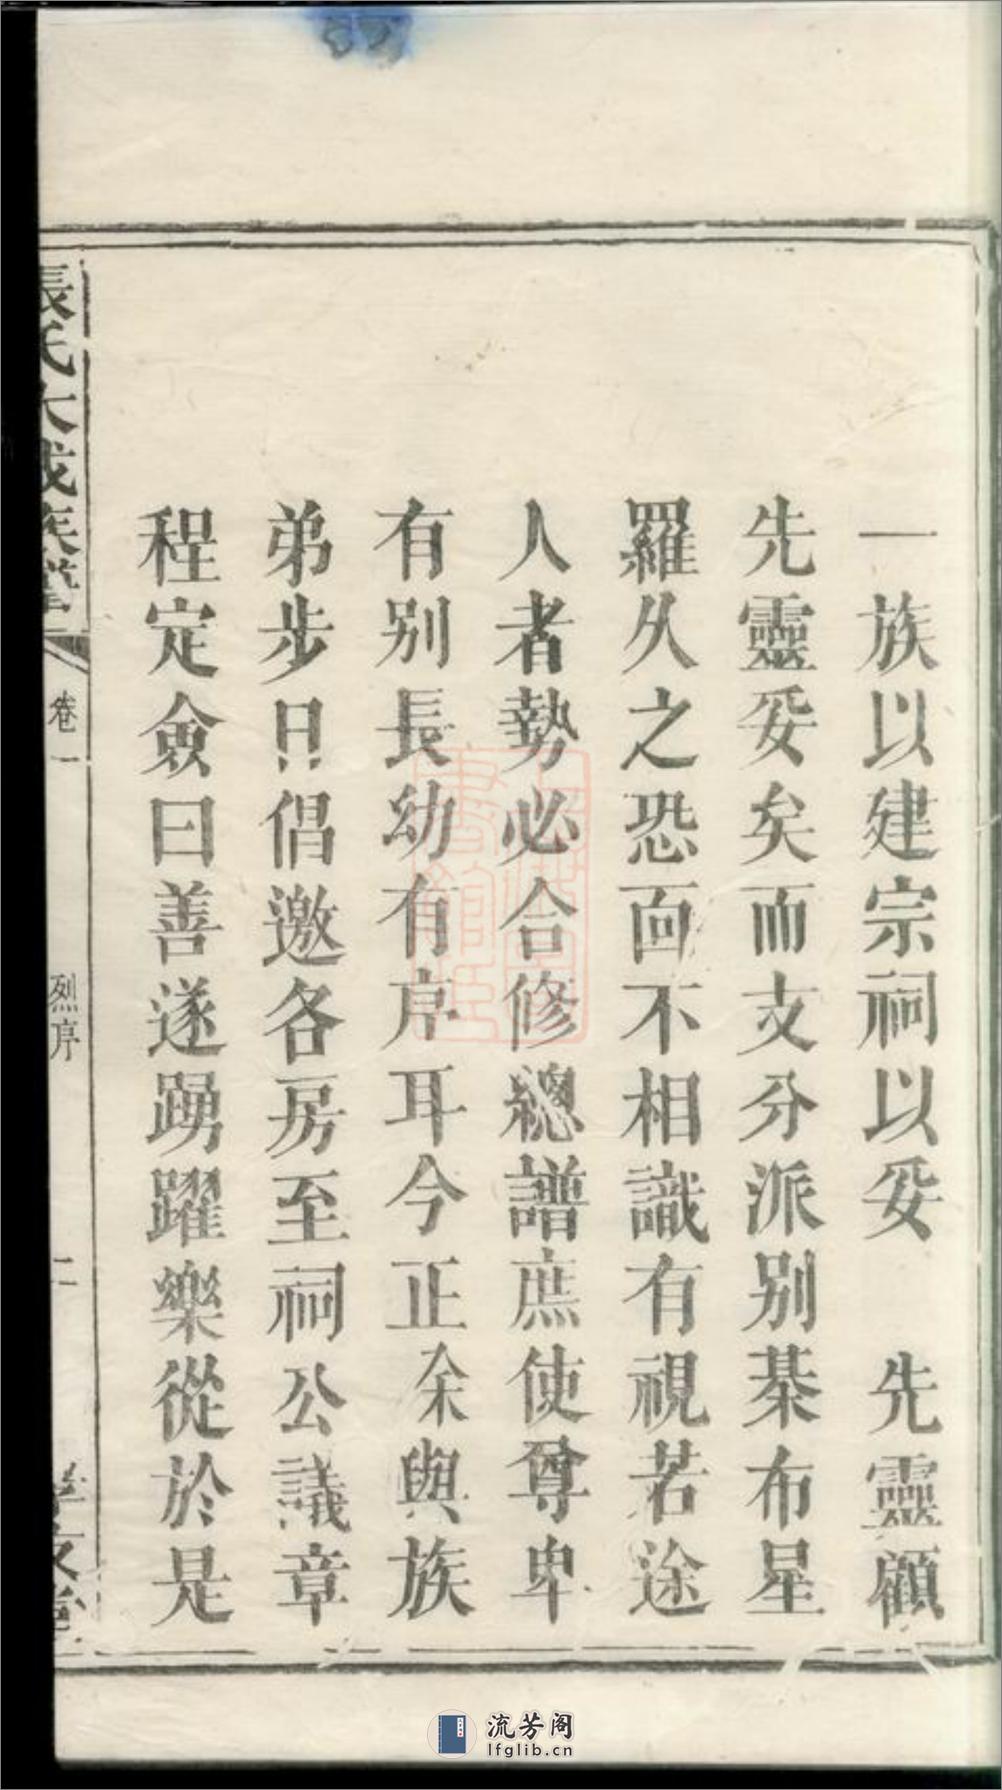 一族以建宗祠以妥　先靈顧
先靈妥矣而支分派別棊布星
羅久之恐面不相識有視若途
人者勢必合修總譜庶使尊卑
有别長幼有序耳今正余與族
弟步日倡邀各房至祠公議章
程定僉曰善遂踴躍樂從於是
張氏大成族譜
卷一
烈序
二
孝友堂
流芳阁
lfglib.cn